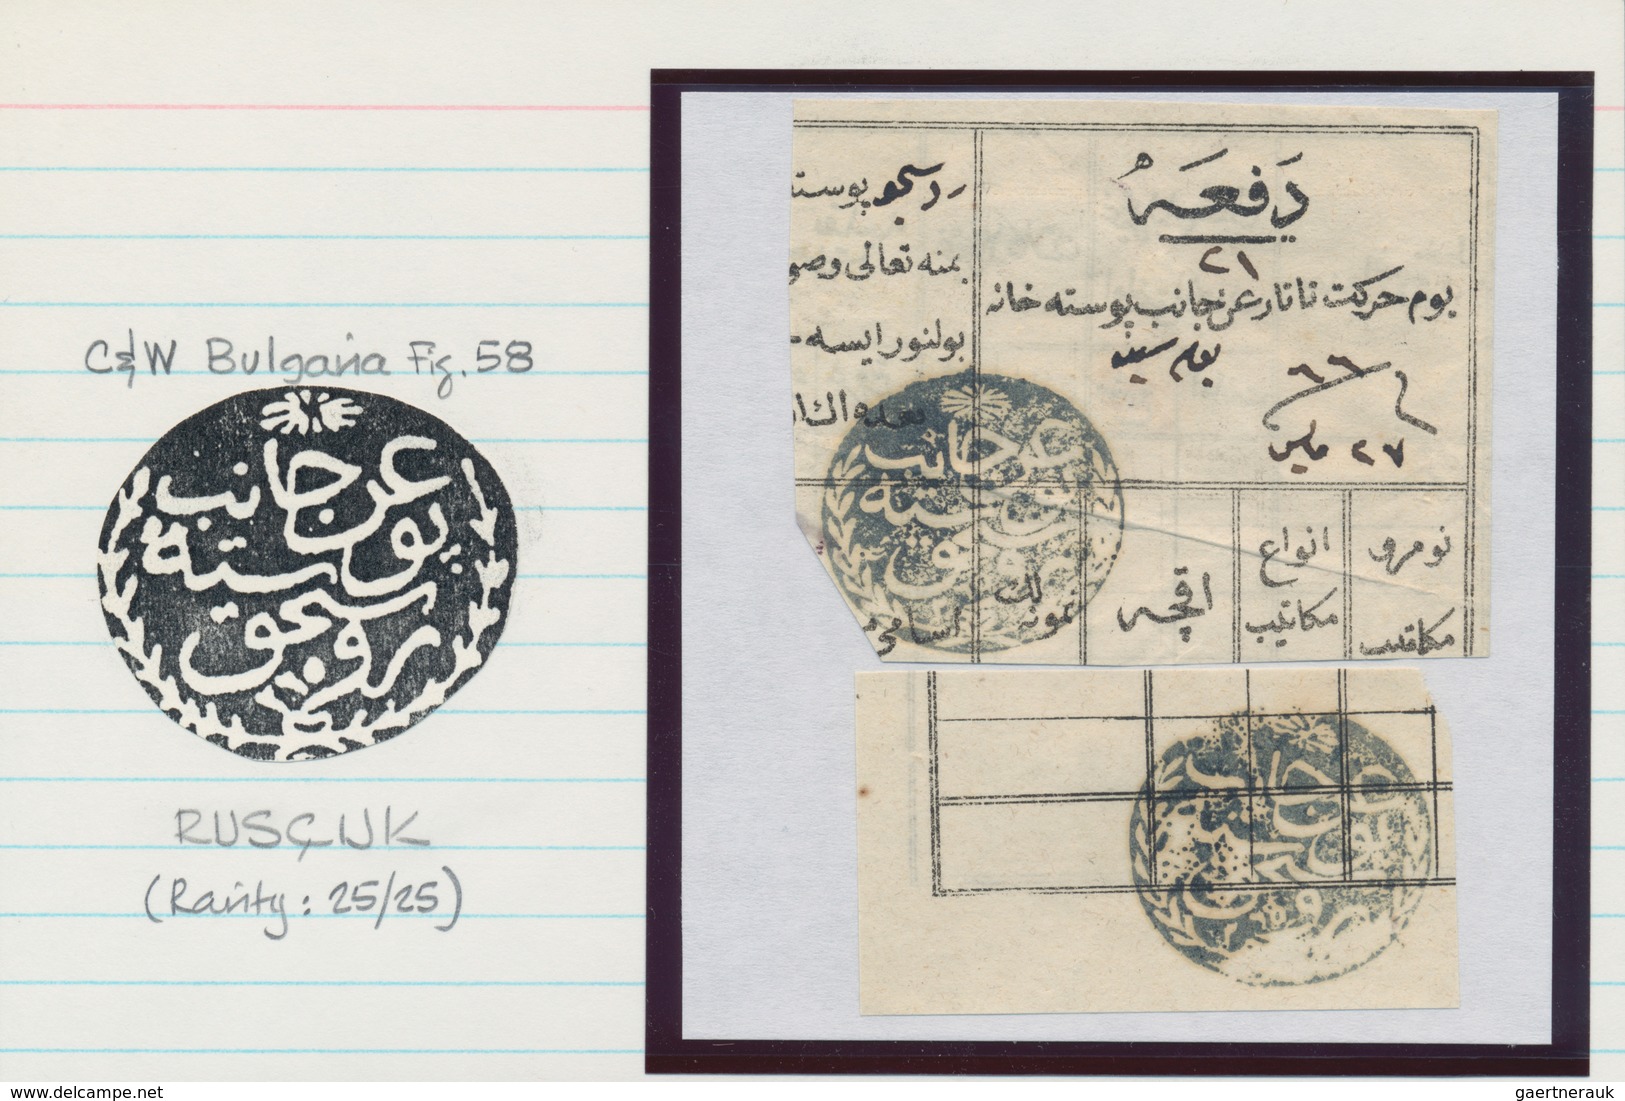 C&W Bulgaria Fig. 58
عن جانب
پوسته
روسجق
RUSÇUK
(Rarity: 25/25)
دفعه
٢١
يوم حركت تاتار عن جانب پوسته خانه
٦٦
٢٧
ردسجو پوستە
بمنه تعالى وصو
بولنور ايسه
بعده الك
نومرو
مكاتيب
انواع
مكاتيب
اقچه
لك
نمونه
اسامى
عن جانب
پوسته
روسجق
عن جانب
پوسته
روسجق
www.delcampe.net
gaertnerauk